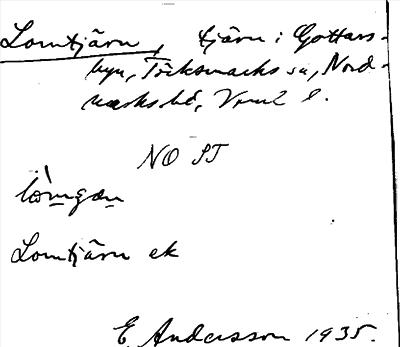 Lomtjärn, tjärn i Gottars-
byn, Töcksmarks sn, Nord-
marks hd, Vrml l.
NO ST
Lomtjärn ek
E. Andersson 1935.